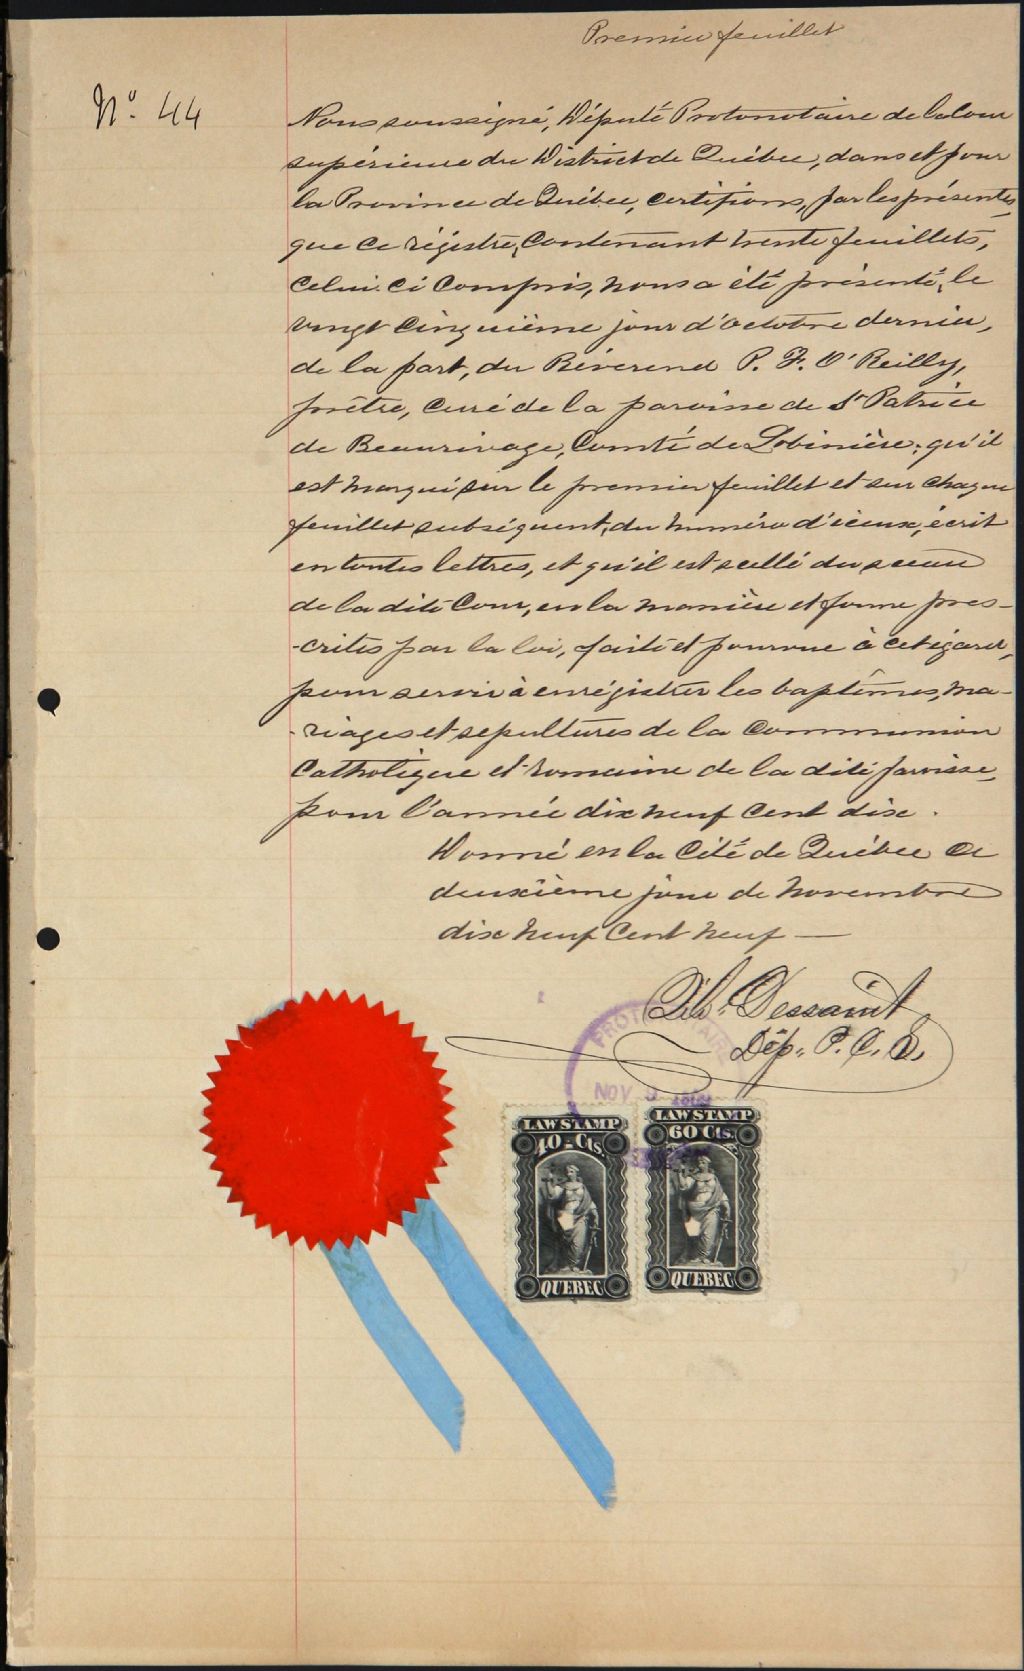 Premier feuillet
No. 44
Nous soussigné, Député Protonotaire de la Cour
supérieure du District de Québec, dans et pour
la Province de Québec, certifions, par les présentes,
que ce régistre, Contenant trente feuillets,
Celui-ci Compris, nous a été présenté, le
vingt cinquième jour d'octobre dernier,
de la part, du Révérend P. F. O'Reilly,
prêtre, curé de la paroisse de St Patrice
de Beaurivage, Comté de Lobinière; qu'il
est marqué sur le premier feuillet et sur chaque
feuillet subséquent, du numéro d'iceux, écrit
en toutes lettres, et qu'il est scellé du sceau
de la dite Cour, en la manière et forme pres-
-crites par la loi, faite et pourvue à cet égard,
pour servir à enrégistrer les baptêmes, ma-
-riages et sépultures de la Communion
Catholique et romaine de la dite paroisse,
pour l'année dix neuf cent dix.
Donné en la Cité de Québec ce
deuxième jour de novembre
dix neuf Cent neuf —
Dessaint
Dép. P. C. S.
PROTONOTAIRE
NOV
LAW STAMP
40 Cts.
QUEBEC
LAW STAMP
60 Cts.
QUEBEC